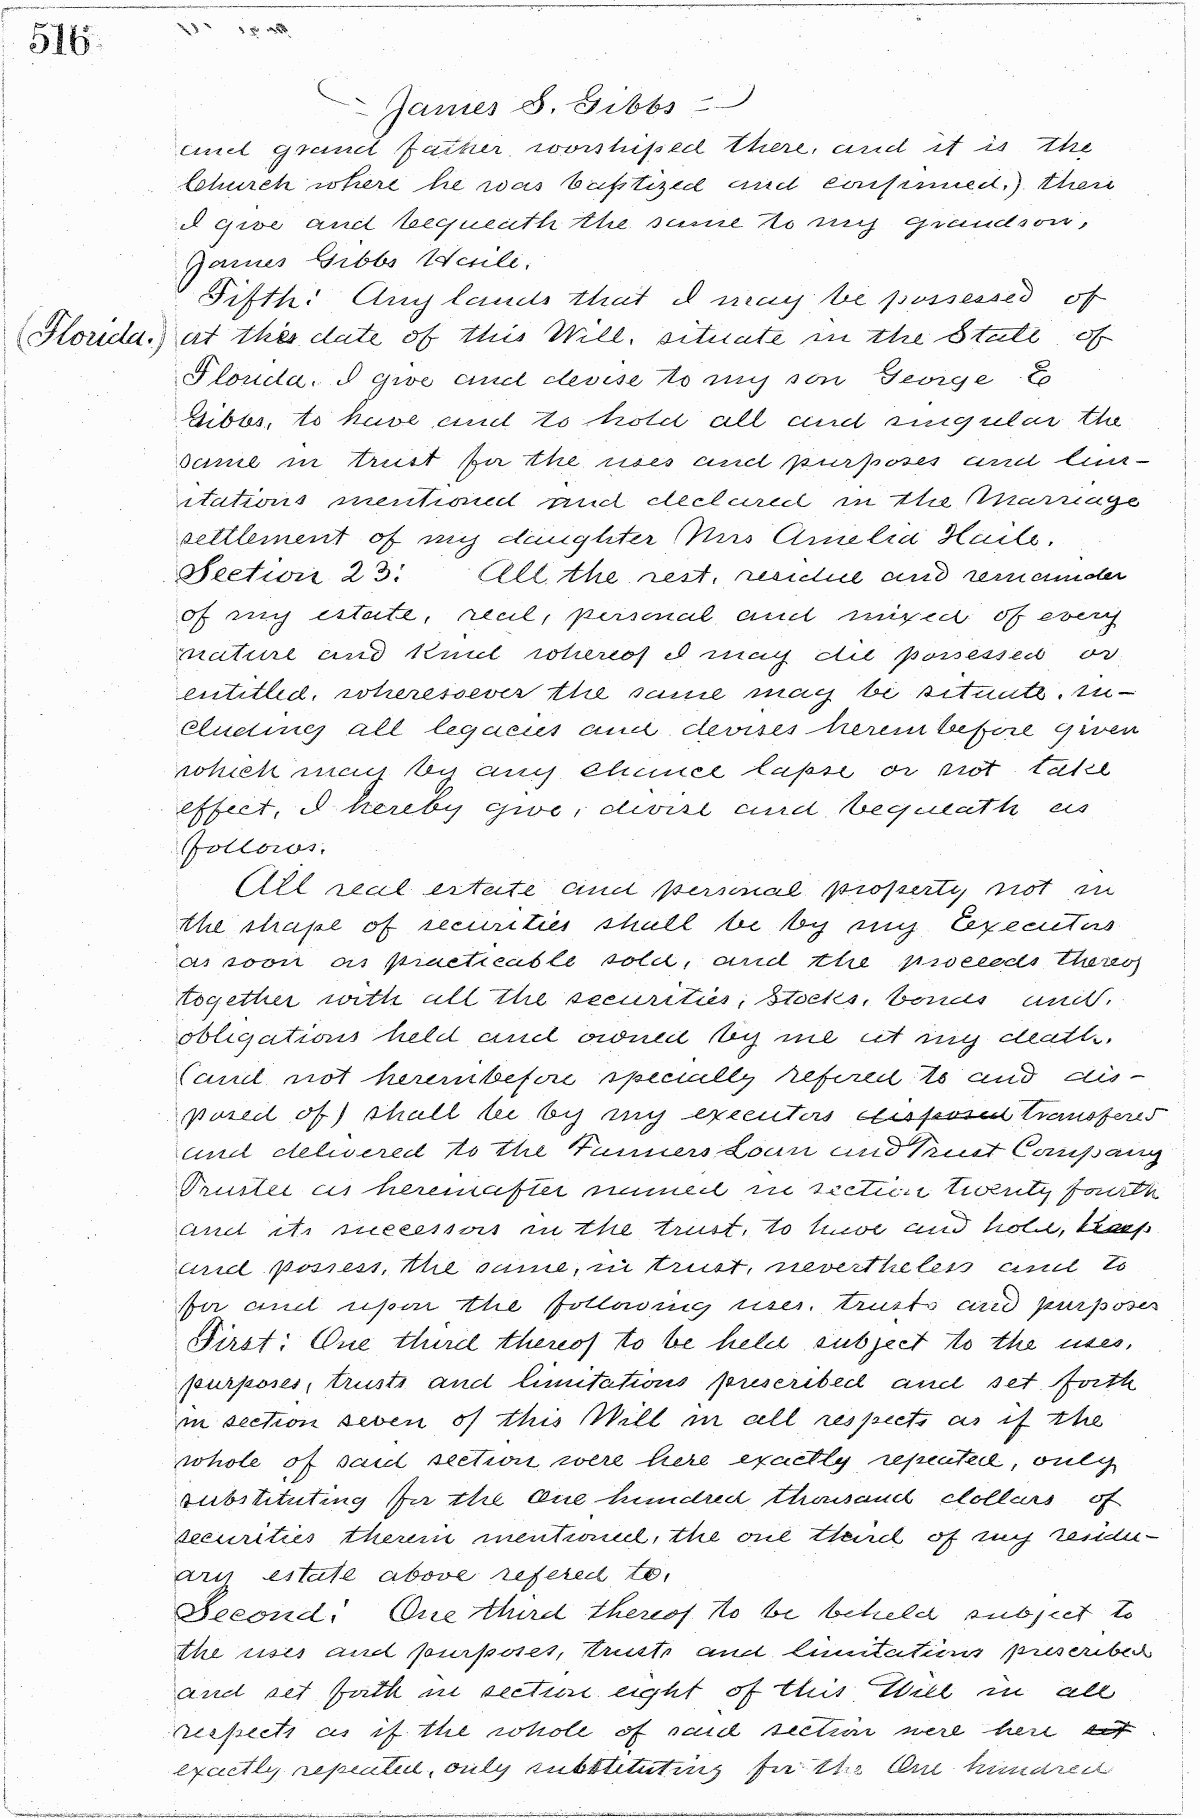 516
James S. Gibbs
and grand father worshiped there, and it is the
Church where he was baptized and confirmed.) then
I give and bequeath the same to my grandson,
James Gibbs Haile.
Fifth: Any lands that I may be possessed of
(Florida.) at this date of this Will, situate in the State of
Florida. I give and devise to my son George E
Gibbs, to have and to hold all and singular the
same in trust for the uses and purposes and lim-
itations mentioned and declared in the Marriage
settlement of my daughter Mrs Amelia Haile.
Section 23: All the rest, residue and remainder
of my estate, real, personal and mixed of every
nature and kind whereof I may die possessed or
entitled, wheresoever the same may be situate, in-
cluding all legacies and devises hereinbefore given
which may by any chance lapse or not take
effect, I hereby give, divise and bequeath as
follows:
All real estate and personal property not in
the shape of securities shall be by my Executors
as soon as practicable sold, and the proceeds thereof
together with all the securities, Stocks, bonds and
obligations held and owned by me at my death,
(and not hereinbefore specially refered to and dis-
posed of) shall be by my executors disposed transfered
and delivered to the Farmers Loan and Trust Company
Trustee as hereinafter named in section twenty fourth
and its successors in the trust, to have and hold, keep
and possess, the same, in trust, nevertheless and to
for and upon the following uses, trusts and purposes
First: One third thereof to be held subject to the uses,
purposes, trusts and limitations prescribed and set forth
in section seven of this Will in all respects as if the
whole of said section were here exactly repeated, only
substituting for the One hundred thousand dollars of
securities therein mentioned, the one third of my residu-
ary estate above refered to.
Second: One third thereof to be beheld subject to
the uses and purposes, trusts and limitations prescribed
and set forth in section eight of this Will in all
respects as if the whole of said section were here set
exactly repeated, only substituting for the One hundred